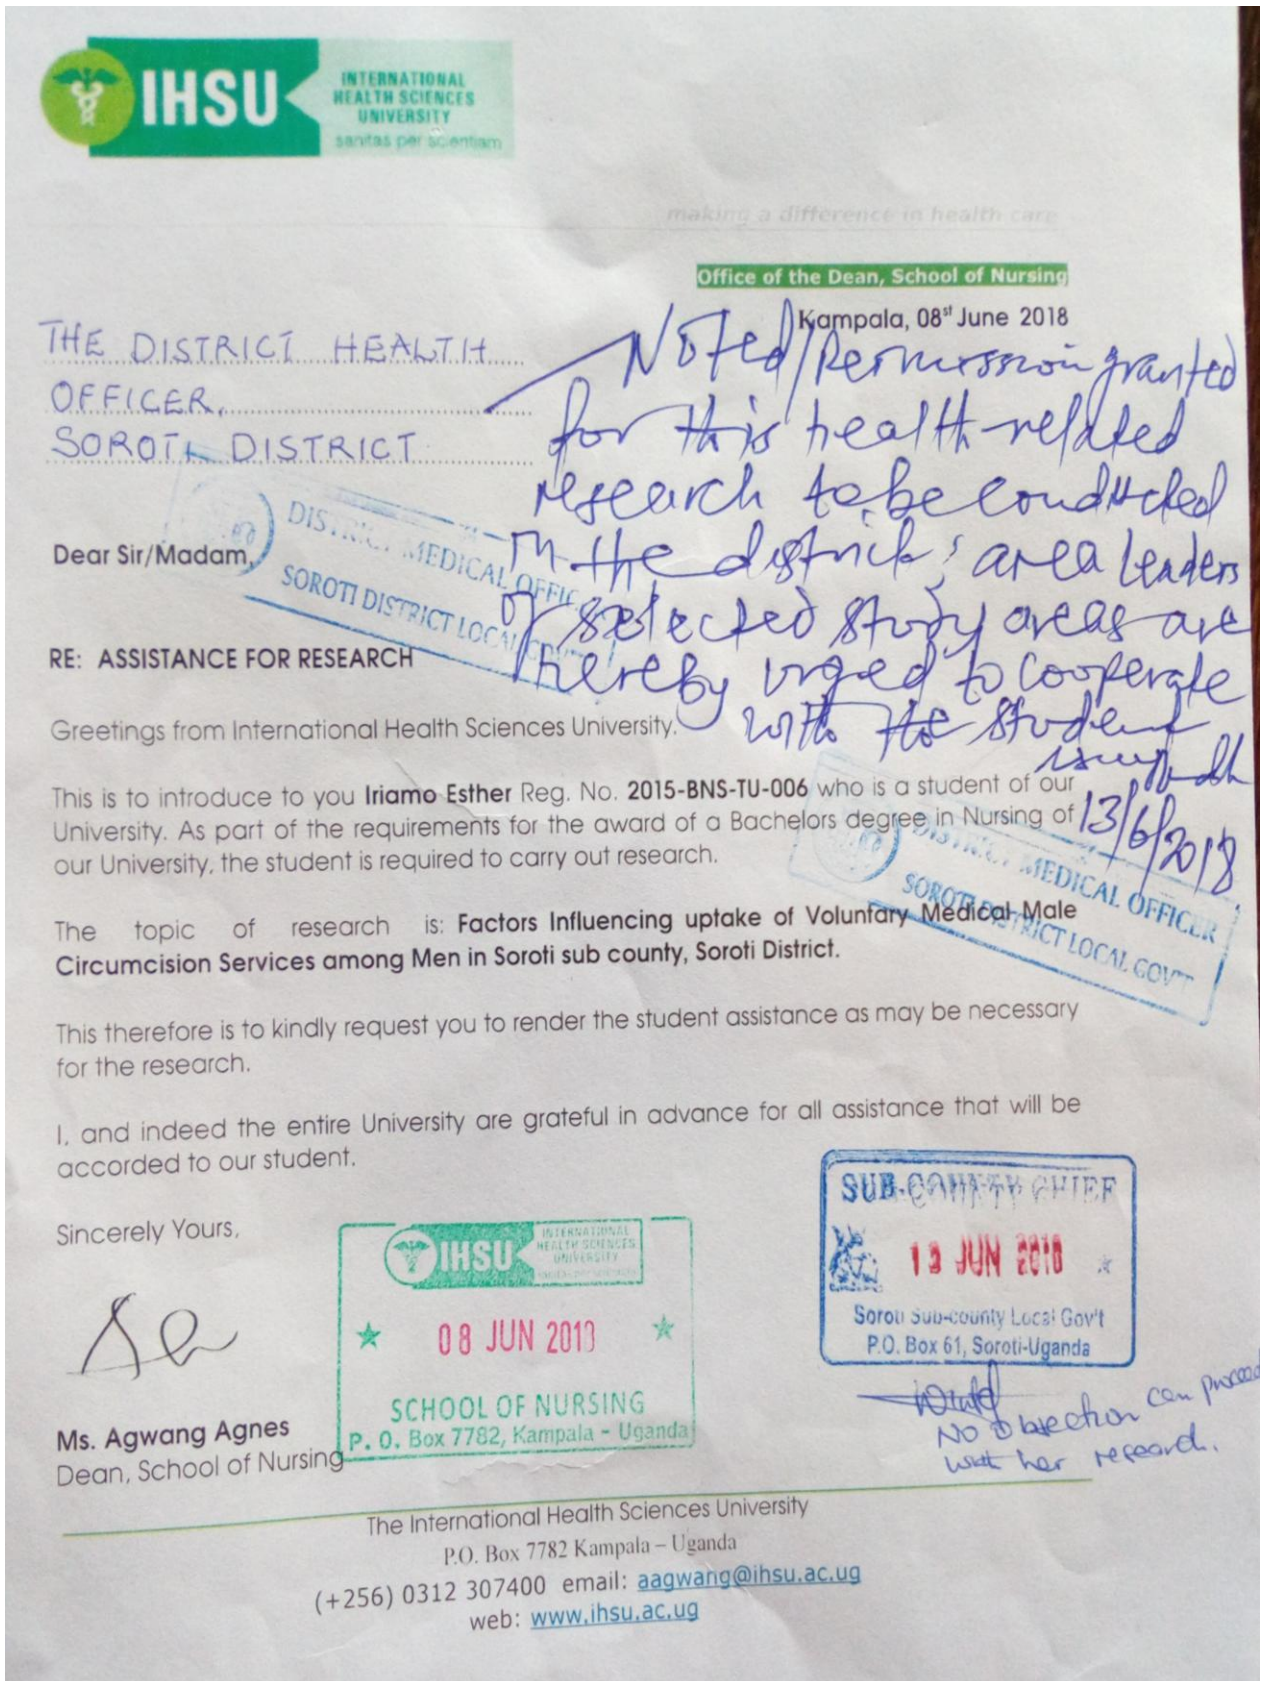 IHSU
INTERNATIONAL
HEALTH SCIENCES
UNIVERSITY
sanitas per scientiam
making a difference in health care
Office of the Dean, School of Nursing
Kampala, 08st June 2018
THE DISTRICT HEALTH
OFFICER,
SOROTI DISTRICT
Noted/Permission granted
for this health-related
research to be conducted
in the district; area leaders
of selected study areas are
hereby urged to cooperate
with the student
13/6/2018
DISTRICT MEDICAL OFFIC
SOROTI DISTRICT LOCAL GOV
Dear Sir/Madam,
RE: ASSISTANCE FOR RESEARCH
Greetings from International Health Sciences University.
This is to introduce to you Iriamo Esther Reg. No. 2015-BNS-TU-006 who is a student of our
University. As part of the requirements for the award of a Bachelors degree in Nursing of
our University, the student is required to carry out research.
DISTRICT MEDICAL OFFICER
SOROTI DISTRICT LOCAL GOVT
The topic of research is: Factors Influencing uptake of Voluntary Medical Male
Circumcision Services among Men in Soroti sub county, Soroti District.
This therefore is to kindly request you to render the student assistance as may be necessary
for the research.
I, and indeed the entire University are grateful in advance for all assistance that will be
accorded to our student.
Sincerely Yours,
IHSU
INTERNATIONAL
HEALTH SCIENCES
UNIVERSITY
08 JUN 2018
SCHOOL OF NURSING
P. O. Box 7782, Kampala - Uganda
SUB-COUNTY CHIEF
JUN 2018
Soroti Sub-county Local Gov't
P.O. Box 61, Soroti-Uganda
No Objection can proceed
with her research.
Ms. Agwang Agnes
Dean, School of Nursing
The International Health Sciences University
P.O. Box 7782 Kampala – Uganda
(+256) 0312 307400 email: aagwang@ihsu.ac.ug
web: www.ihsu.ac.ug